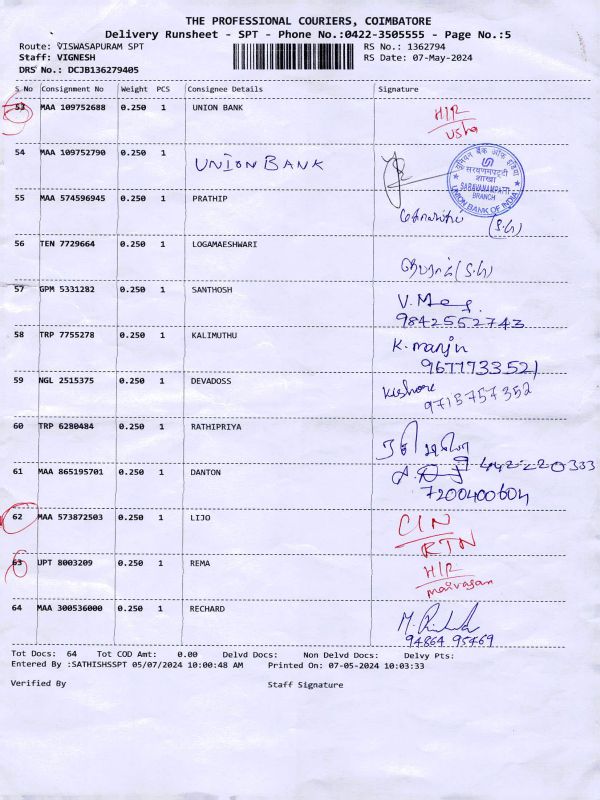 THE PROFESSIONAL COURIERS, COIMBATORE
Delivery Runsheet - SPT - Phone No.:0422-3505555 - Page No.:5
Route: VISWASAPURAM SPT RS No.: 1362794
Staff: VIGNESH RS Date: 07-May-2024
DRS No.: DCJB136279405
S No Consignment No Weight PCS Consignee Details Signature
53 MAA 109752688 0.250 1 UNION BANK H/R
usha
54 MAA 109752790 0.250 1 UNION BANK
यूनियन बैंक ऑफ इंडिया
शाखा
SARAVANAMPATTI
BRANCH
UNION BANK OF INDIA
55 MAA 574596945 0.250 1 PRATHIP
(S.G)
56 TEN 7729664 0.250 1 LOGAMAESHWARI
(S.G)
57 GPM 5331282 0.250 1 SANTHOSH V.
9842552743
58 TRP 7755278 0.250 1 KALIMUTHU K. manju
9677733521
59 NGL 2515375 0.250 1 DEVADOSS Kishore
9715757352
60 TRP 6280484 0.250 1 RATHIPRIYA
61 MAA 865195701 0.250 1 DANTON
7200400604
62 MAA 573872503 0.250 1 LIJO CIN
RTN
63 UPT 8003209 0.250 1 REMA H/R
manivasan
64 MAA 300536000 0.250 1 RECHARD
94864 95469
Tot Docs: 64 Tot COD Amt: 0.00 Delvd Docs: Non Delvd Docs: Delvy Pts:
Entered By :SATHISHSSPT 05/07/2024 10:00:48 AM Printed On: 07-05-2024 10:03:33
Verified By Staff Signature